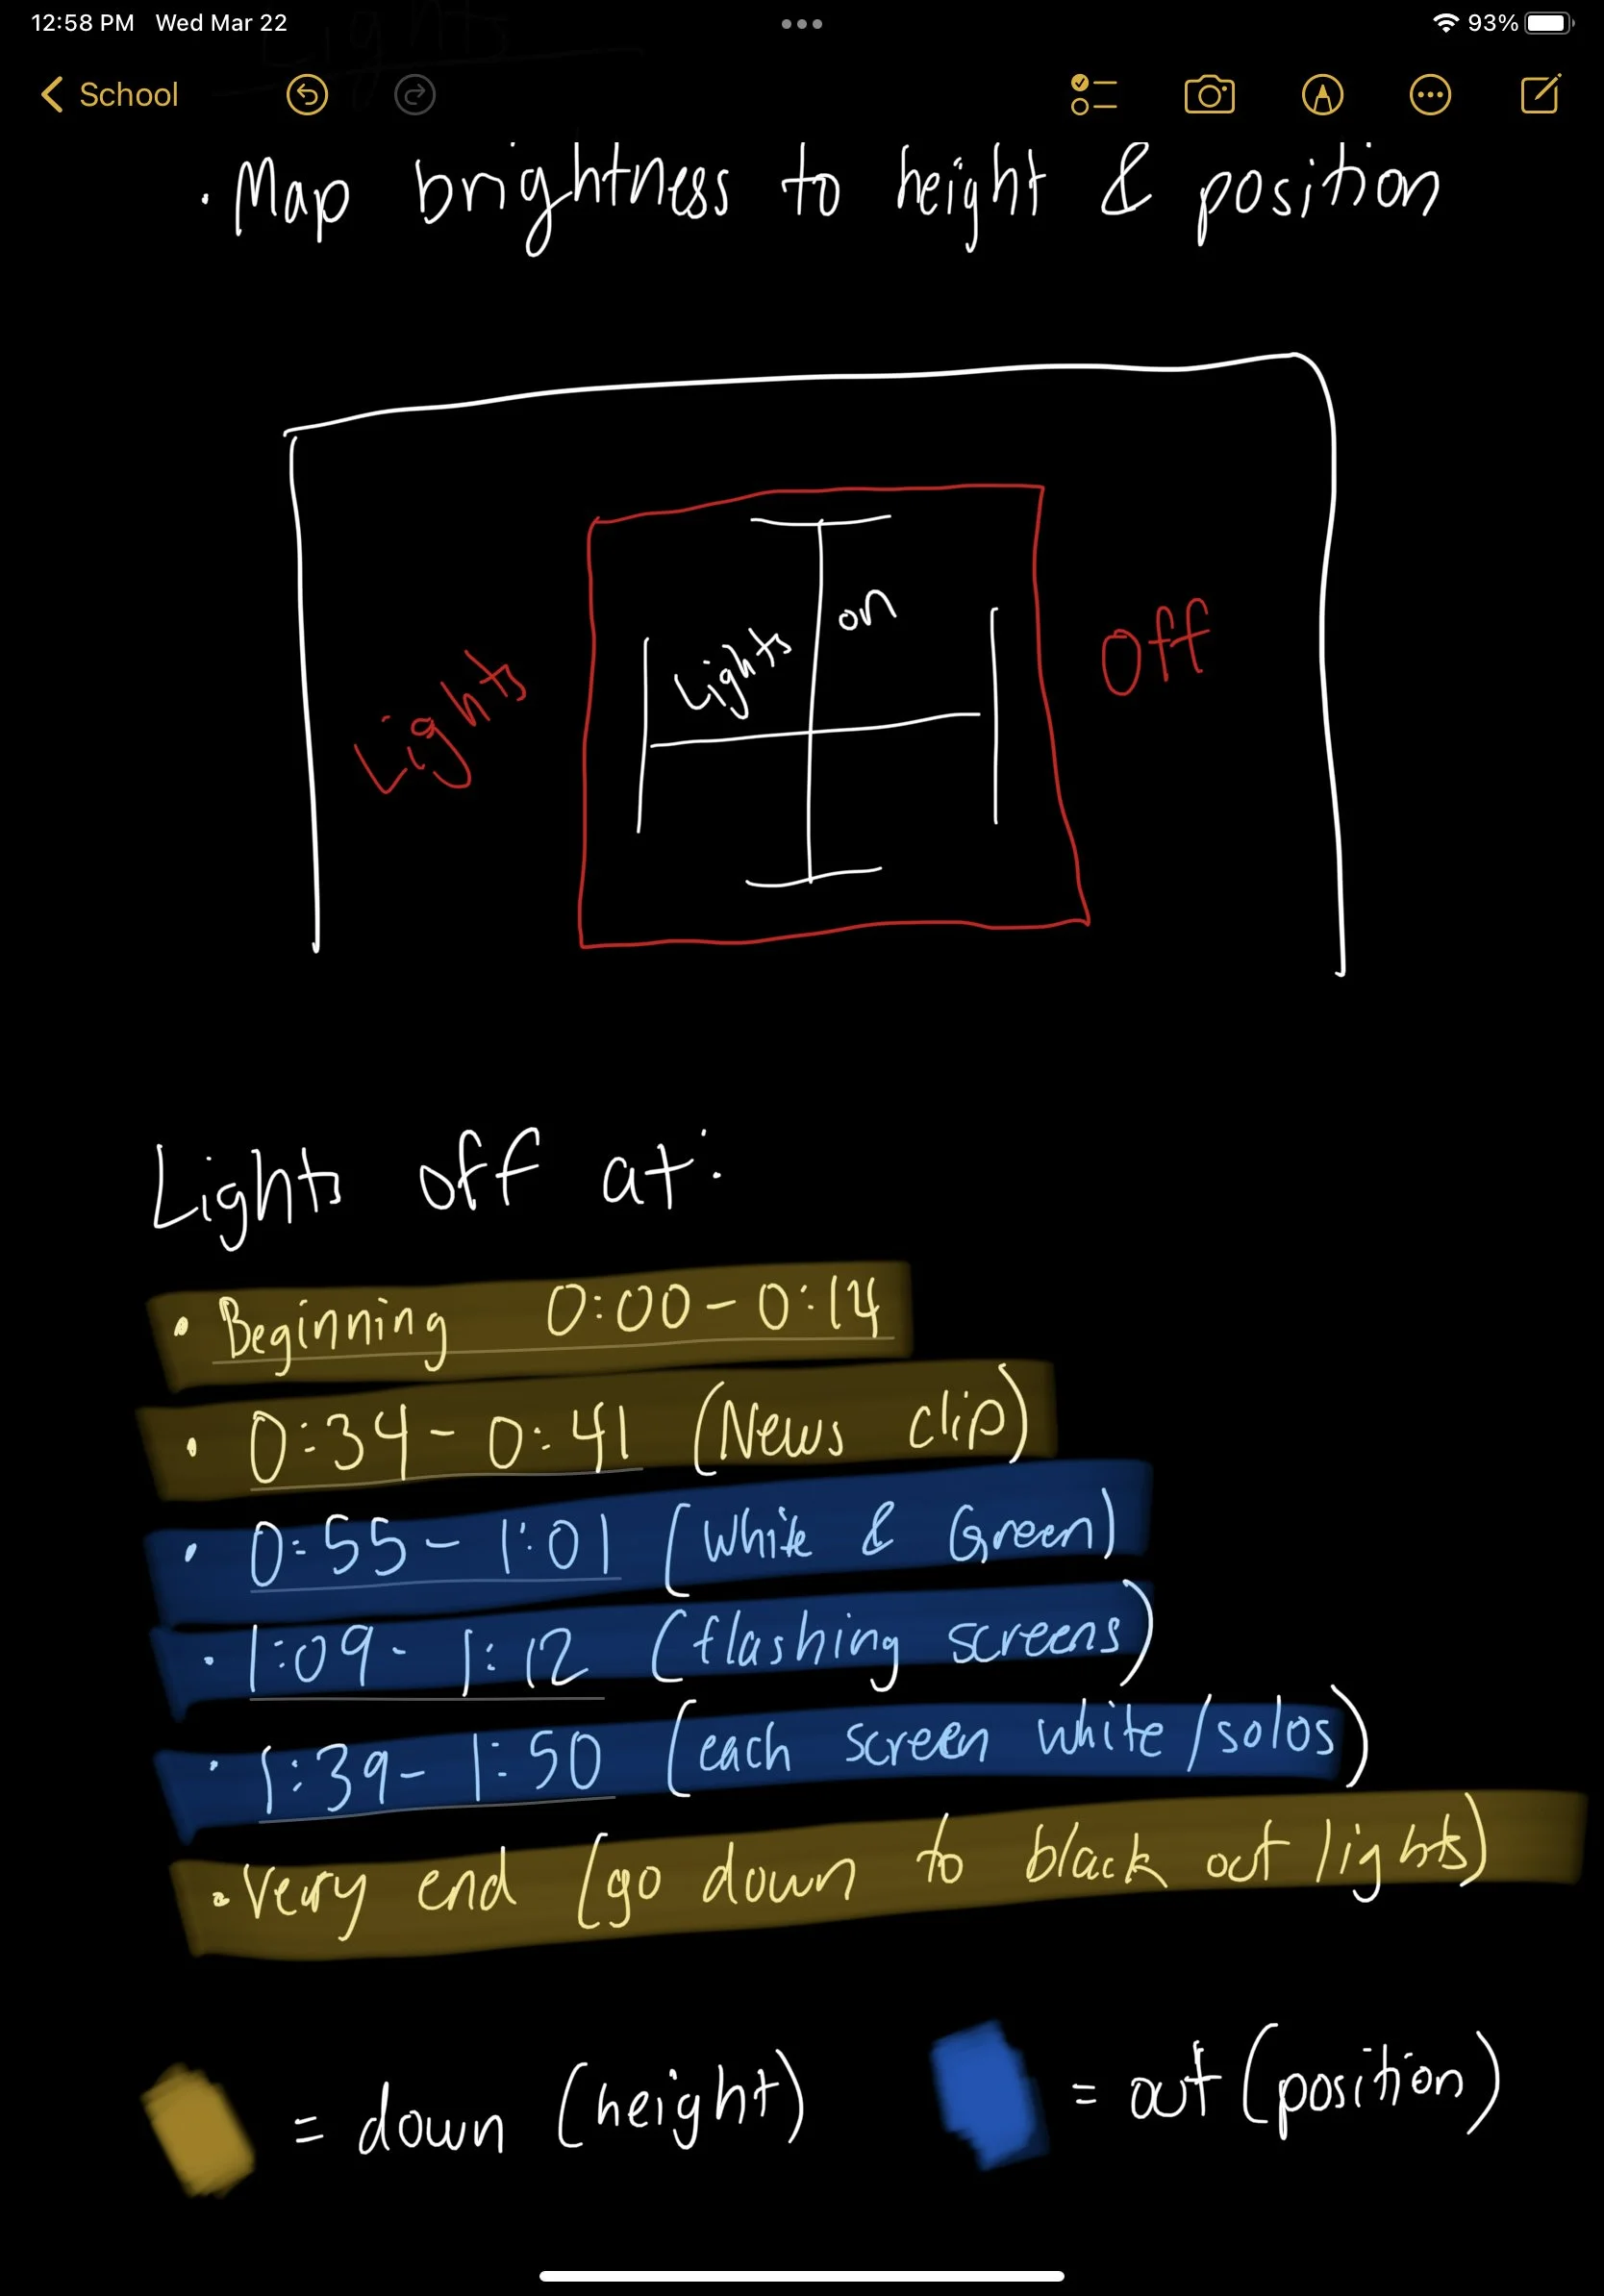 12:58 PM Wed Mar 22
93%
Lights
School
• Map brightness to height & position
Lights on
Lights Off
Lights off at:
• Beginning 0:00 - 0:14
• 0:34 - 0:41 (News clip)
• 0:55 - 1:01 (White & Green)
• 1:09 - 1:12 (flashing screens)
• 1:39 - 1:50 (each screen white/solos)
• Very end (go down to black out lights)
= down (height)
= out (position)